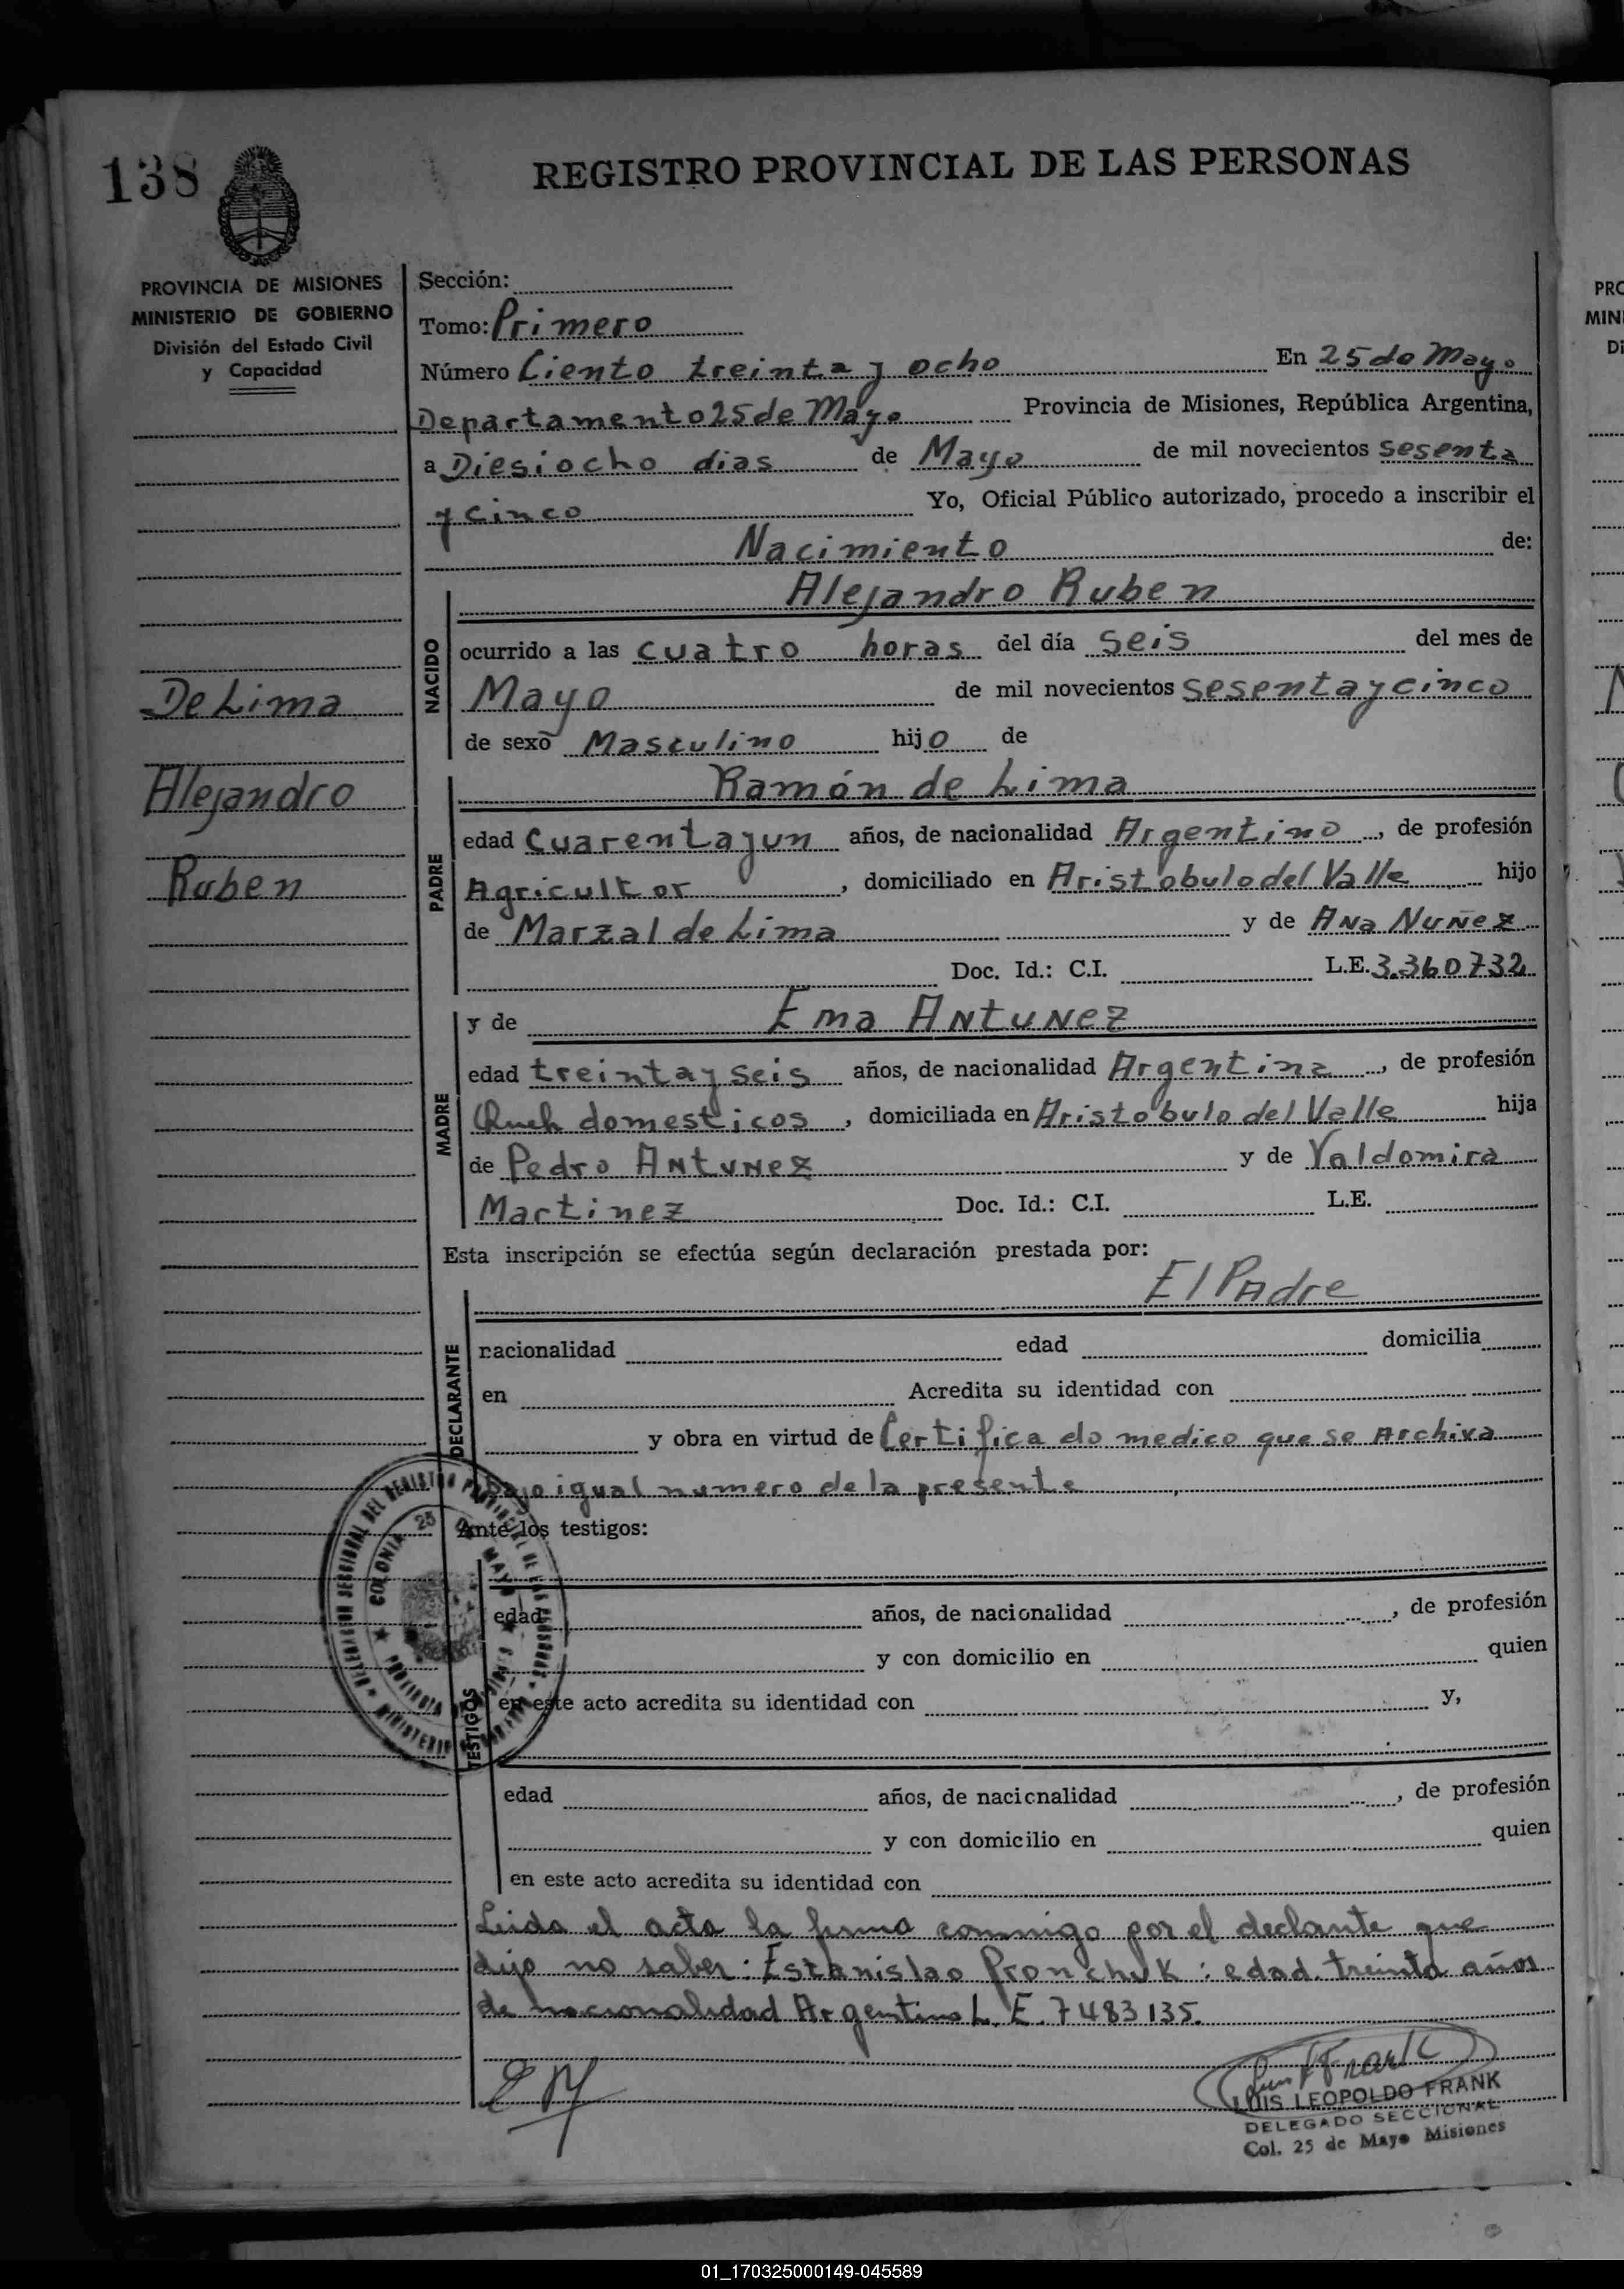 138
REGISTRO PROVINCIAL DE LAS PERSONAS
PROVINCIA DE MISIONES
MINISTERIO DE GOBIERNO
División del Estado Civil
y Capacidad
De Lima
Alejandro
Ruben
Sección:
Tomo: Primero
Número Ciento treinta y ocho En 25 de Mayo
Departamento 25 de Mayo Provincia de Misiones, República Argentina,
a Diesiocho dias de Mayo de mil novecientos sesenta
y cinco Yo, Oficial Público autorizado, procedo a inscribir el
Nacimiento de:
NACIDO
Alejandro Ruben
ocurrido a las cuatro horas del día seis del mes de
Mayo de mil novecientos sesenta y cinco
de sexo Masculino hijo de
PADRE
Ramón de Lima
edad Cuarenta y un años, de nacionalidad Argentino, de profesión
Agricultor, domiciliado en Aristobulo del Valle hijo
de Marzal de Lima y de Ana Nuñez
Doc. Id.: C.I. L.E. 3.360732
MADRE
y de Ema Antunez
edad treinta y seis años, de nacionalidad Argentina, de profesión
Queh domesticos, domiciliada en Aristobulo del Valle hija
de Pedro Antunez y de Valdomira
Martinez Doc. Id.: C.I. L.E.
Esta inscripción se efectúa según declaración prestada por:
DECLARANTE
El Padre
nacionalidad edad domicilia
en Acredita su identidad con
y obra en virtud de Certificado medico que se Archiva
bajo igual numero de la presente
Ante los testigos:
TESTIGOS
edad años, de nacionalidad , de profesión
y con domicilio en quien
en este acto acredita su identidad con y,
edad años, de nacionalidad , de profesión
y con domicilio en quien
en este acto acredita su identidad con
Leida el acta la firma conmigo por el declante que
dijo no saber: Estanislao Pronchuk: edad treinta años
de nacionalidad Argentino L. E. 7483135.
LUIS LEOPOLDO FRANK
DELEGADO SECCIONAL
Col. 25 de Mayo Misiones
COLONIA 25 MAYO
01_170325000149-045589